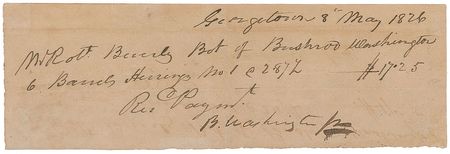 Georgetown 8th May 1826
Mr Robt. Beverly Bot of Bushrod Washington
6 Barrels Herrings No 1 @ 287½ $17.25
Recd Paymt
B. Washington Jr